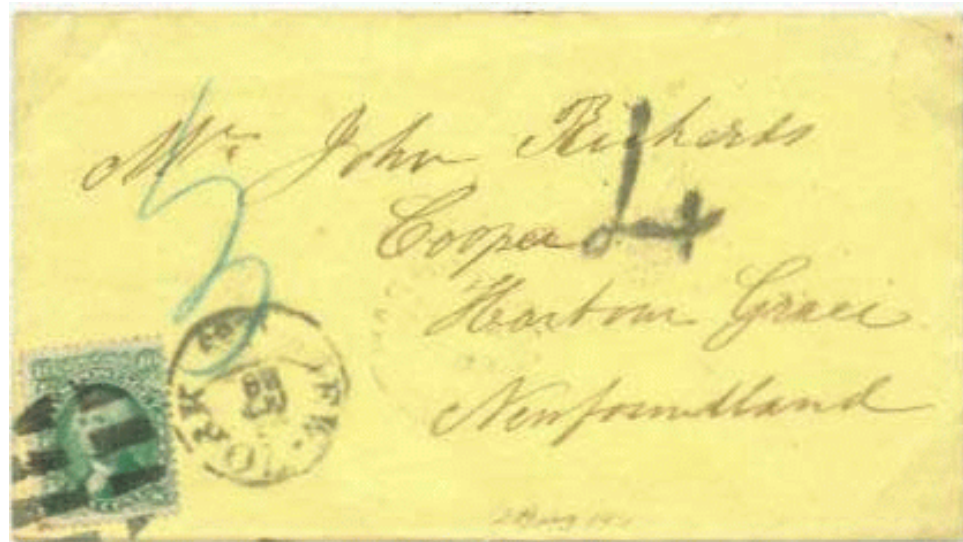 Mr. John Richards
Cooper
Harbour Grace
Newfoundland
4
3
NEW YORK
10